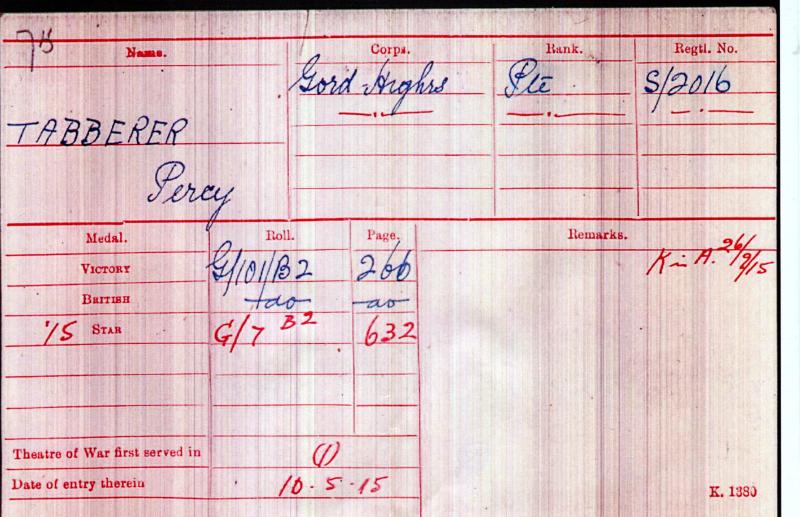 78
Name. Corps. Rank. Regtl. No.
Gord Highrs Pte S/2016
TABBERER
Percy
Medal. Roll. Page. Remarks.
VICTORY G/101/B2 266 K in A. 26/9/15
BRITISH do do
'15 STAR G/7 B2 632
Theatre of War first served in (1)
Date of entry therein 10-5-15
K. 1380